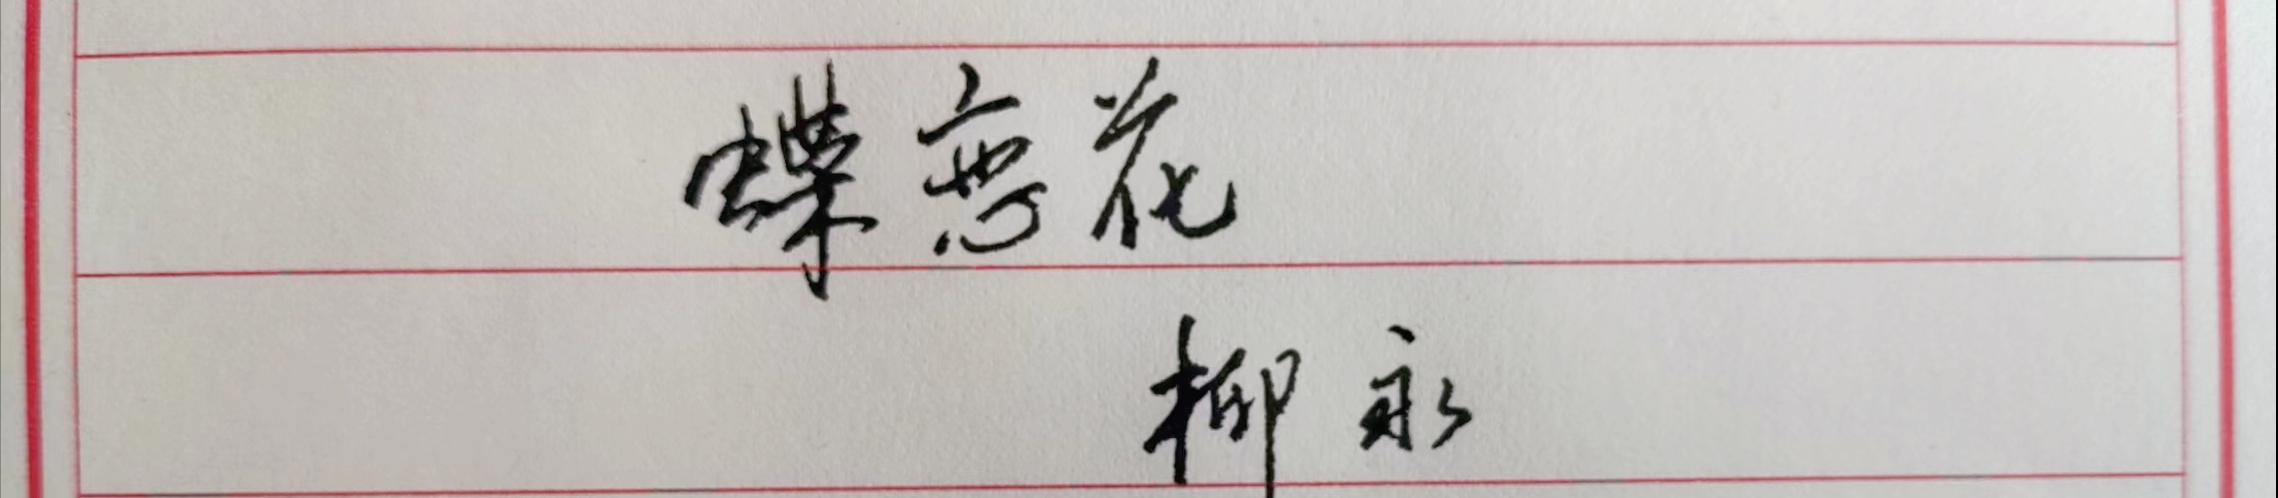 蝶恋花
柳永